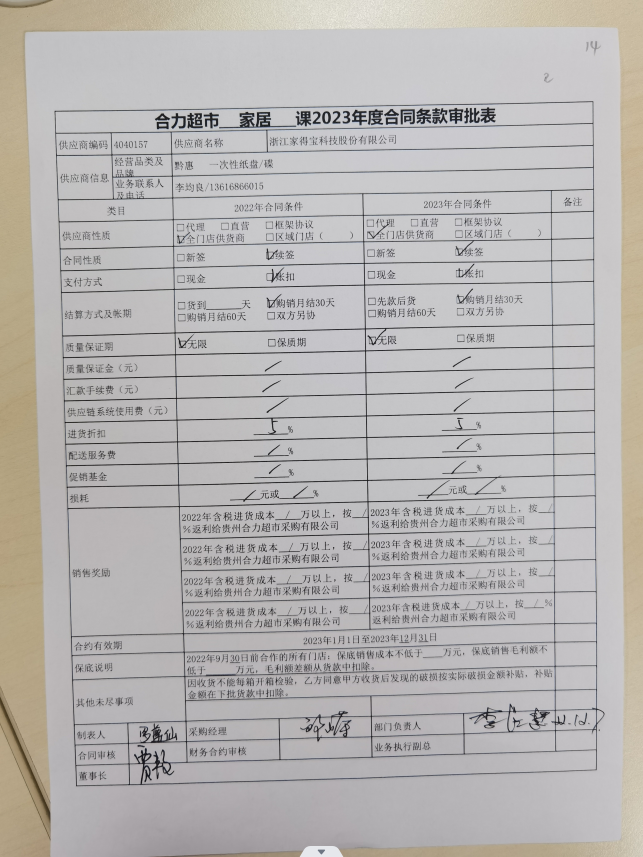 14
2
合力超市 家居 课2023年度合同条款审批表
供应商编码 4040157 供应商名称 浙江家得宝科技股份有限公司
供应商信息 经营品类及品牌 黔惠 一次性纸盘/碟
业务联系人及电话 李均良/13616866015
类目 2022年合同条件 2023年合同条件 备注
供应商性质 □代理 □直营 □框架协议 □代理 □直营 □框架协议
☑全门店供货商 □区域门店( ) ☑全门店供货商 □区域门店( )
合同性质 □新签 ☑续签 □新签 ☑续签
支付方式 □现金 ☑账扣 □现金 ☑账扣
结算方式及帐期 □货到____天 ☑购销月结30天 □先款后货 ☑购销月结30天
□购销月结60天 □双方另协 □购销月结60天 □双方另协
质量保证期 ☑无限 □保质期 ☑无限 □保质期
质量保证金（元） / /
汇款手续费（元） / /
供应链系统使用费（元） / /
进货折扣 5 % 5 %
配送服务费 / % / %
促销基金 / % / %
损耗 / 元或 / % / 元或 / %
销售奖励
2022年含税进货成本 / 万以上，按 / 2023年含税进货成本 / 万以上，按 /
%返利给贵州合力超市采购有限公司 %返利给贵州合力超市采购有限公司
2022年含税进货成本 / 万以上，按 / 2023年含税进货成本 / 万以上，按 /
%返利给贵州合力超市采购有限公司 %返利给贵州合力超市采购有限公司
2022年含税进货成本 / 万以上，按 / 2023年含税进货成本 / 万以上，按 /
%返利给贵州合力超市采购有限公司 %返利给贵州合力超市采购有限公司
2022年含税进货成本 / 万以上，按 / 2023年含税进货成本 / 万以上，按 / %
%返利给贵州合力超市采购有限公司 返利给贵州合力超市采购有限公司
合约有效期 2023年1月1日至2023年12月31日
保底说明 2022年9月30日前合作的所有门店：保底销售成本不低于____万元，保底销售毛利额不
低于____万元，毛利额差额从货款中扣除。
其他未尽事项 因收货不能每箱开箱检验，乙方同意甲方收货后发现的破损按实际破损金额补贴，补贴
金额在下批货款中扣除。
制表人 采购经理 部门负责人
合同审核 财务合约审核 业务执行副总
董事长